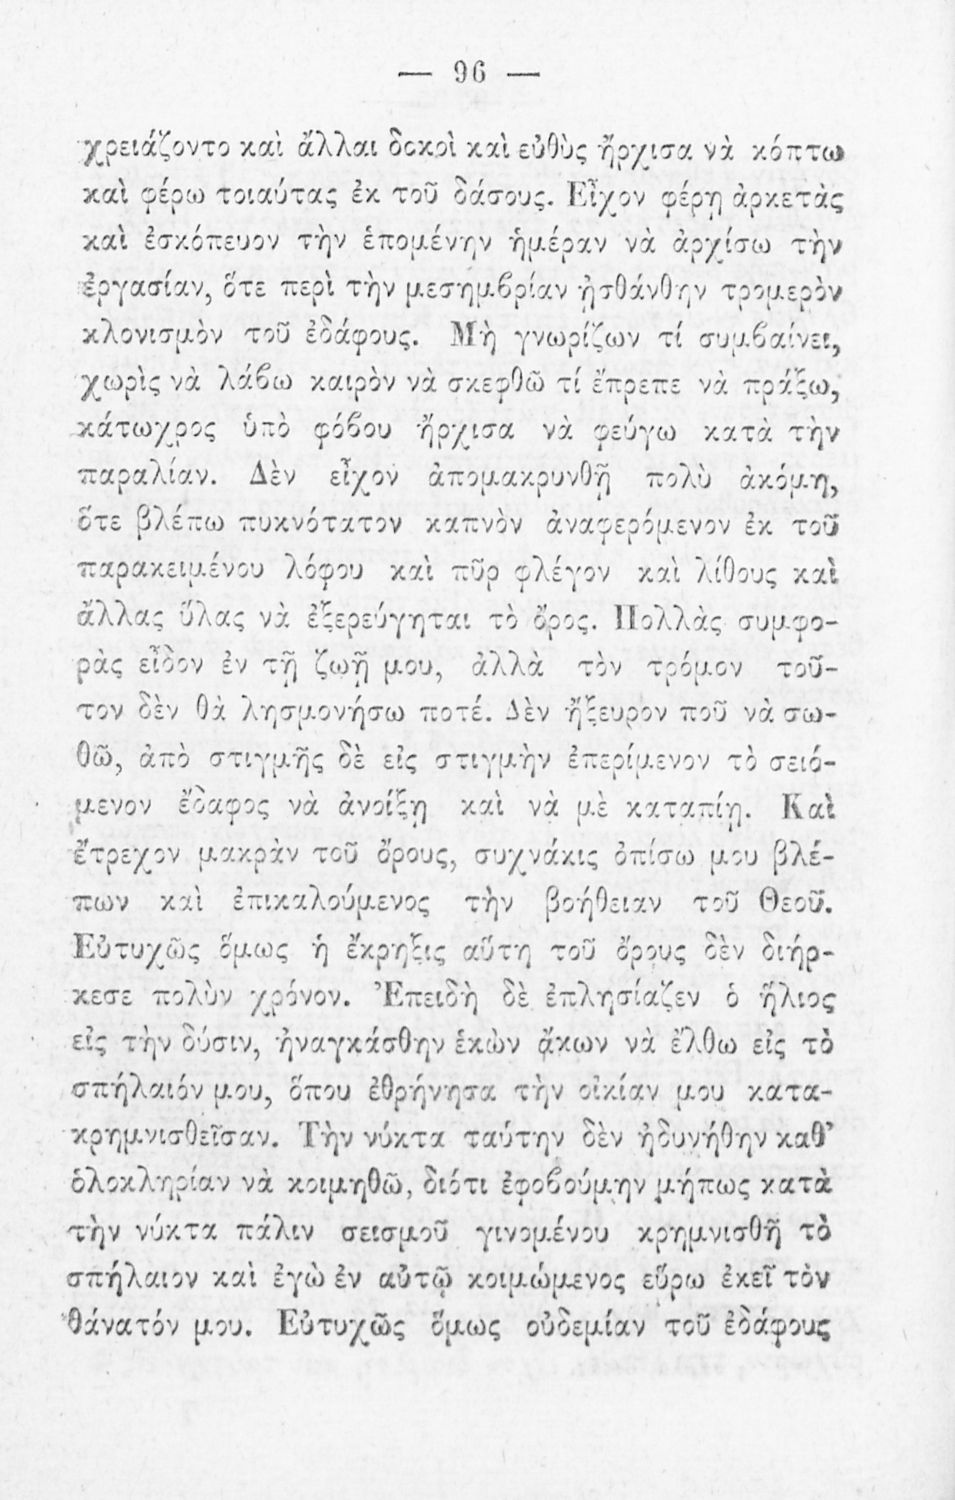 — 96 —
χρειάζοντο καὶ ἄλλαι δοκοὶ καὶ εὐθὺς ἤρχισα νὰ κόπτω
καὶ φέρω τοιαύτας ἐκ τοῦ δάσους. Εἶχον φέρῃ ἀρκετὰς
καὶ ἐσκόπευον τὴν ἑπομένην ἡμέραν νὰ ἀρχίσω τὴν
ἐργασίαν, ὅτε περὶ τὴν μεσημβρίαν ᾐσθάνθην τρομερὸν
κλονισμὸν τοῦ ἐδάφους. Μὴ γνωρίζων τί συμβαίνει,
χωρὶς νὰ λάβω καιρὸν νὰ σκεφθῶ τί ἔπρεπε νὰ πράξω,
κάτωχρος ὑπὸ φόβου ἤρχισα νὰ φεύγω κατὰ τὴν
παραλίαν. Δὲν εἶχον ἀπομακρυνθῆ πολὺ ἀκόμη,
ὅτε βλέπω πυκνότατον καπνὸν ἀναφερόμενον ἐκ τοῦ
παρακειμένου λόφου καὶ πῦρ φλέγον καὶ λίθους καὶ
ἄλλας ὕλας νὰ ἐξερεύγηται τὸ ὄρος. Πολλὰς συμφο-
ρὰς εἶδον ἐν τῇ ζωῇ μου, ἀλλὰ τὸν τρόμον τοῦ-
τον δὲν θὰ λησμονήσω ποτέ. Δὲν ἤξευρον ποῦ νὰ σω-
θῶ, ἀπὸ στιγμῆς δὲ εἰς στιγμὴν ἐπερίμενον τὸ σειό-
μενον ἔδαφος νὰ ἀνοίξῃ καὶ νὰ μὲ καταπίῃ. Καὶ
ἔτρεχον μακρὰν τοῦ ὄρους, συχνάκις ὀπίσω μου βλέ-
πων καὶ ἐπικαλούμενος τὴν βοήθειαν τοῦ Θεοῦ.
Εὐτυχῶς ὅμως ἡ ἔκρηξις αὕτη τοῦ ὄρους δὲν διήρ-
κεσε πολὺν χρόνον. Ἐπειδὴ δὲ ἐπλησίαζεν ὁ ἥλιος
εἰς τὴν δύσιν, ἠναγκάσθην ἑκὼν ἄκων νὰ ἔλθω εἰς τὸ
σπήλαιόν μου, ὅπου ἐθρήνησα τὴν οἰκίαν μου κατα-
κρημνισθεῖσαν. Τὴν νύκτα ταύτην δὲν ἠδυνήθην καθ’
ὁλοκληρίαν νὰ κοιμηθῶ, διότι ἐφοβούμην μήπως κατὰ
τὴν νύκτα πάλιν σεισμοῦ γινομένου κρημνισθῇ τὸ
σπήλαιον καὶ ἐγὼ ἐν αὐτῷ κοιμώμενος εὕρω ἐκεῖ τὸν
θάνατόν μου. Εὐτυχῶς ὅμως οὐδεμίαν τοῦ ἐδάφους